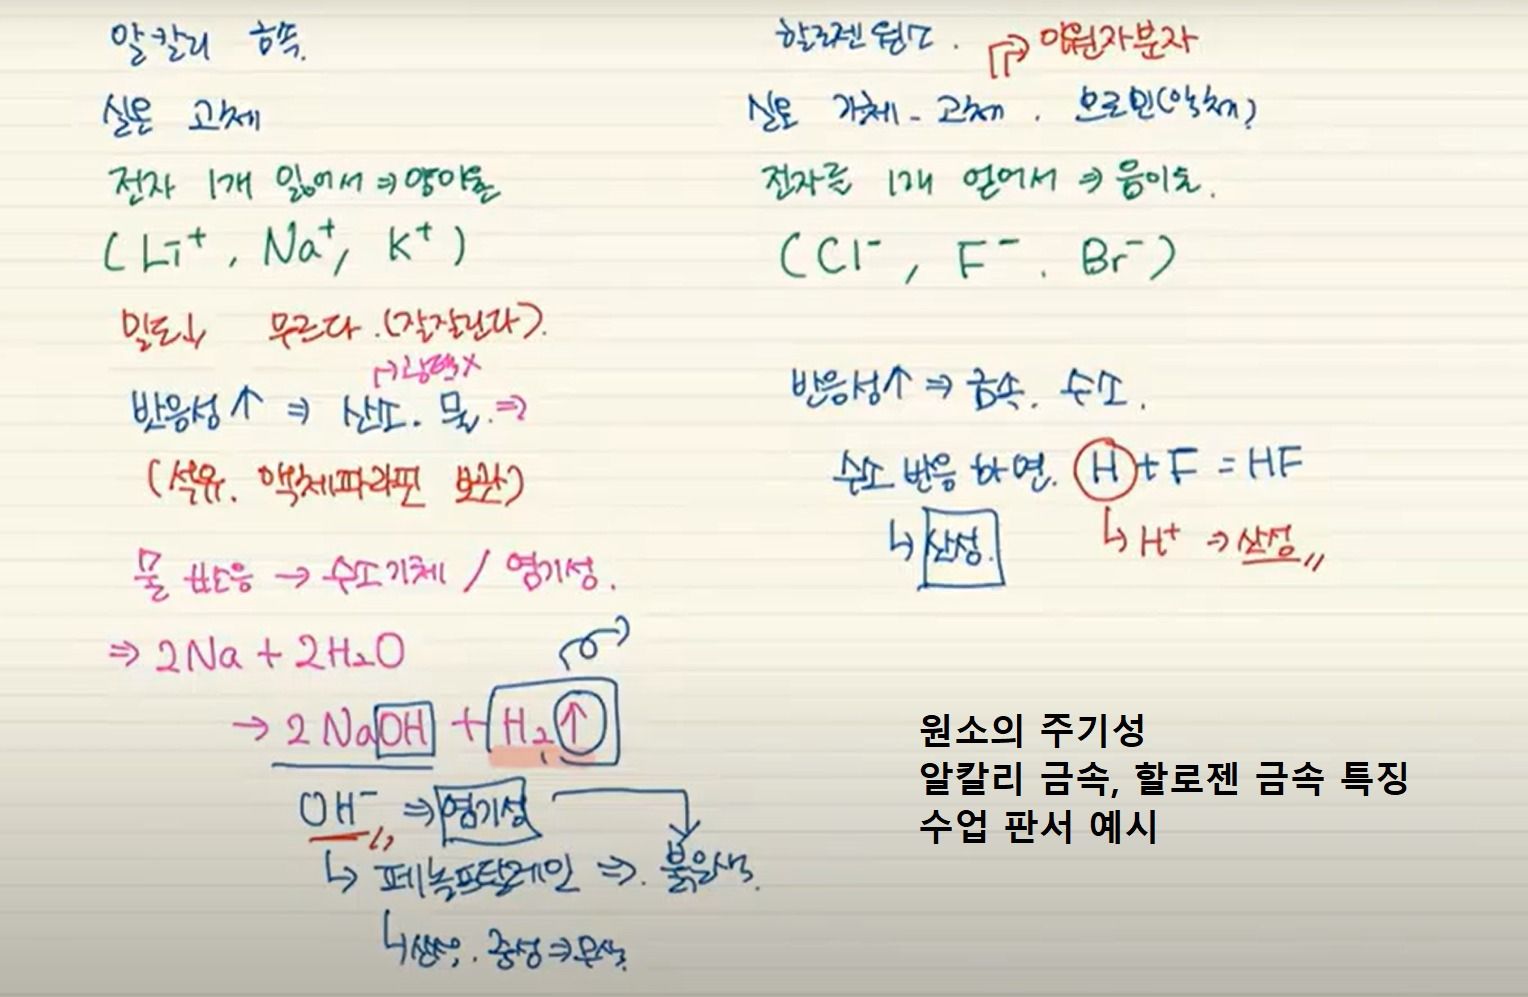 알칼리 금속.
실온 고체
전자 1개 잃어서 ⇒ 양이온
(Li⁺, Na⁺, K⁺)
밀도↓ 무르다. (잘잘린다).
→ 광택×
반응성↑ ⇒ 산소. 물. ⇒
(석유. 액체파라핀 보관)
물 반응 → 수소기체 / 염기성.
⇒ 2Na + 2H₂O
→ 2NaOH + H₂↑
OH⁻ ⇒ 염기성
↳ 페놀프탈레인 ⇒. 붉은색.
↳ 산성. 중성 ⇒ 무색.
할로젠 원소.
→ 이원자분자
실온 기체 - 고체. 브로민(액체)
전자를 1개 얻어서 ⇒ 음이온.
(Cl⁻, F⁻. Br⁻)
반응성↑ ⇒ 금속. 수소.
수소 반응 하면. H + F = HF
↳ 산성.
↳ H⁺ ⇒ 산성
원소의 주기성
알칼리 금속, 할로젠 금속 특징
수업 판서 예시